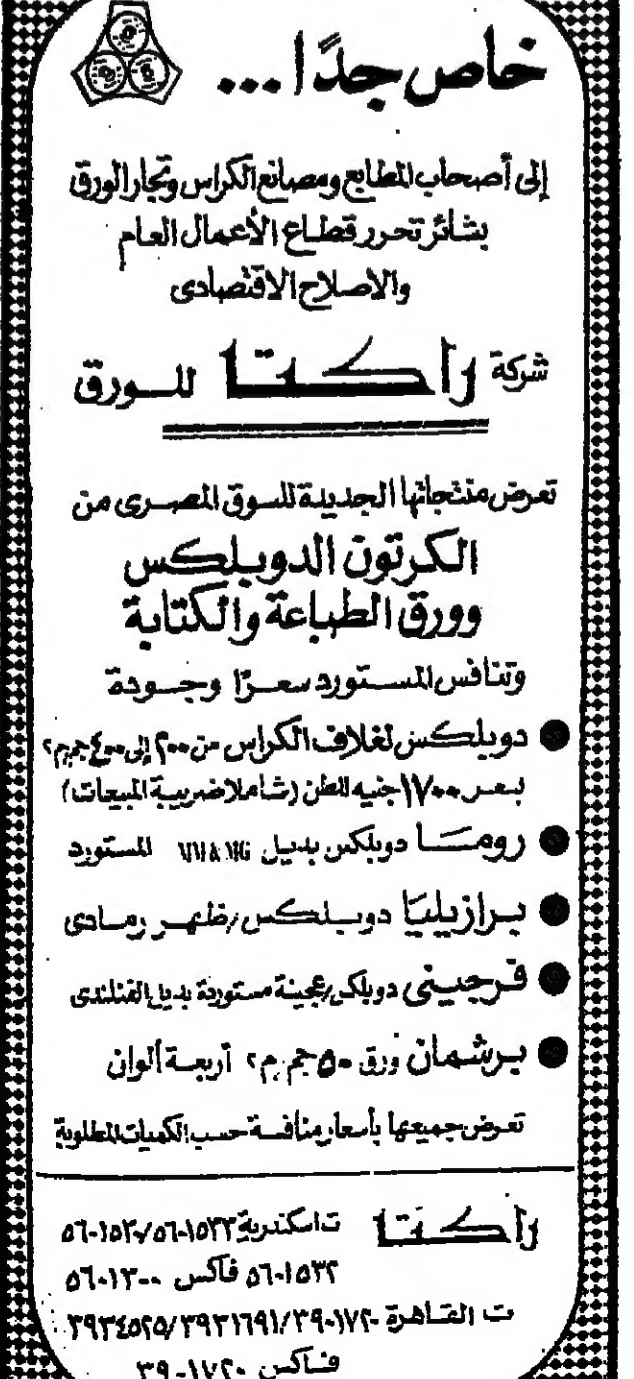 خاص جدًا ...
إلى أصحاب المطابع ومصانع الكراس وتجار الورق
بشائر تحرر قطاع الأعمال العام
والاصلاح الاقتصادى
شركة راكتا للورق
تعرض منتجاتها الجديدة للسوق المصرى من
الكرتون الدوبلكس
وورق الطباعة والكتابة
وتنافس المستورد سعرًا وجودة
● دوبلكس لغلاف الكراس من ٢٠٠ إلى ٤٠٠ جم/م٢
بسعر ١٧٠٠ جنيه للطن (شاملا ضريبة المبيعات)
● رومـا دوبلكس بديل المستورد
● برازيليا دوبلكس/ظهر رمادى
● فرجينى دوبلكس/عجينة مستوردة بديل الفنلندى
● برشمان ورق ٥٠ جم/م٢ أربعة ألوان
تعرض جميعها بأسعار منافسة حسب الكميات المطلوبة
راكتا ت اسكندرية ٥٦٠١٥٣٣/٥٦٠١٥٣٠
٥٦٠١٥٣٢ فاكس ٥٦٠١٣٠٠
ت القاهرة ٣٩٠١٧٢٠/٣٩٣١٦٩١/٣٩٣٤٥٢٥
فاكس ٣٩٠١٧٢٠